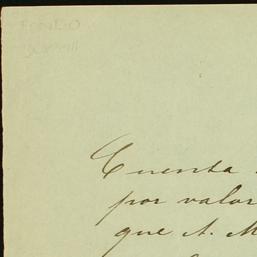 Cuenta
por valor
que A. M